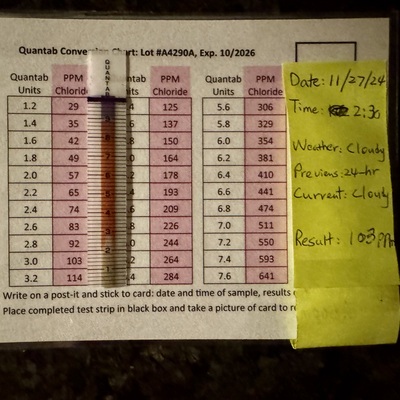 Quantab Chart: Lot #A4290A, Exp. 10/2026
QUANTAB
Quantab PPM PPM Quantab PPM
Units Chloride Units Chloride Units Chloride
1.2 29 .4 125 5.6 306
1.4 35 .6 137 5.8 329
1.6 42 .8 150 6.0 354
1.8 49 .0 164 6.2 381
2.0 57 .2 178 6.4 410
2.2 65 .4 193 6.6 441
2.4 74 .6 209 6.8 474
2.6 83 .8 226 7.0 511
2.8 92 .0 244 7.2 550
3.0 103 .2 264 7.4 593
3.2 114 .4 284 7.6 641
Write on a post-it and stick to card: date and time of sample, results
Place completed test strip in black box and take a picture of card to
Date: 11/27/24
Time: 2:30
Weather: Cloudy
Previous 24-hr
Current: Cloudy
Result: 103 PPM